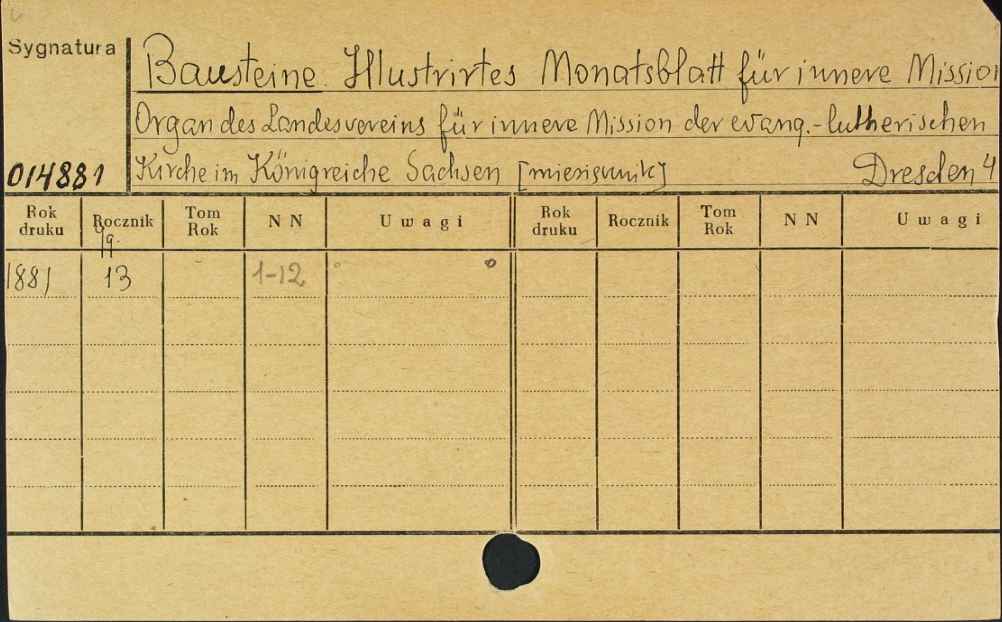 Sygnatura
Bausteine. Illustrirtes Monatsblatt für innere Mission
Organ des Landesvereins für innere Mission der evang.-lutherischen
014881 Kirche im Königreiche Sachsen [miesięcznik] Dresden 4
Rok druku Rocznik Tom Rok NN Uwagi Rok druku Rocznik Tom Rok NN Uwagi
Jg.
1881 13 1-12